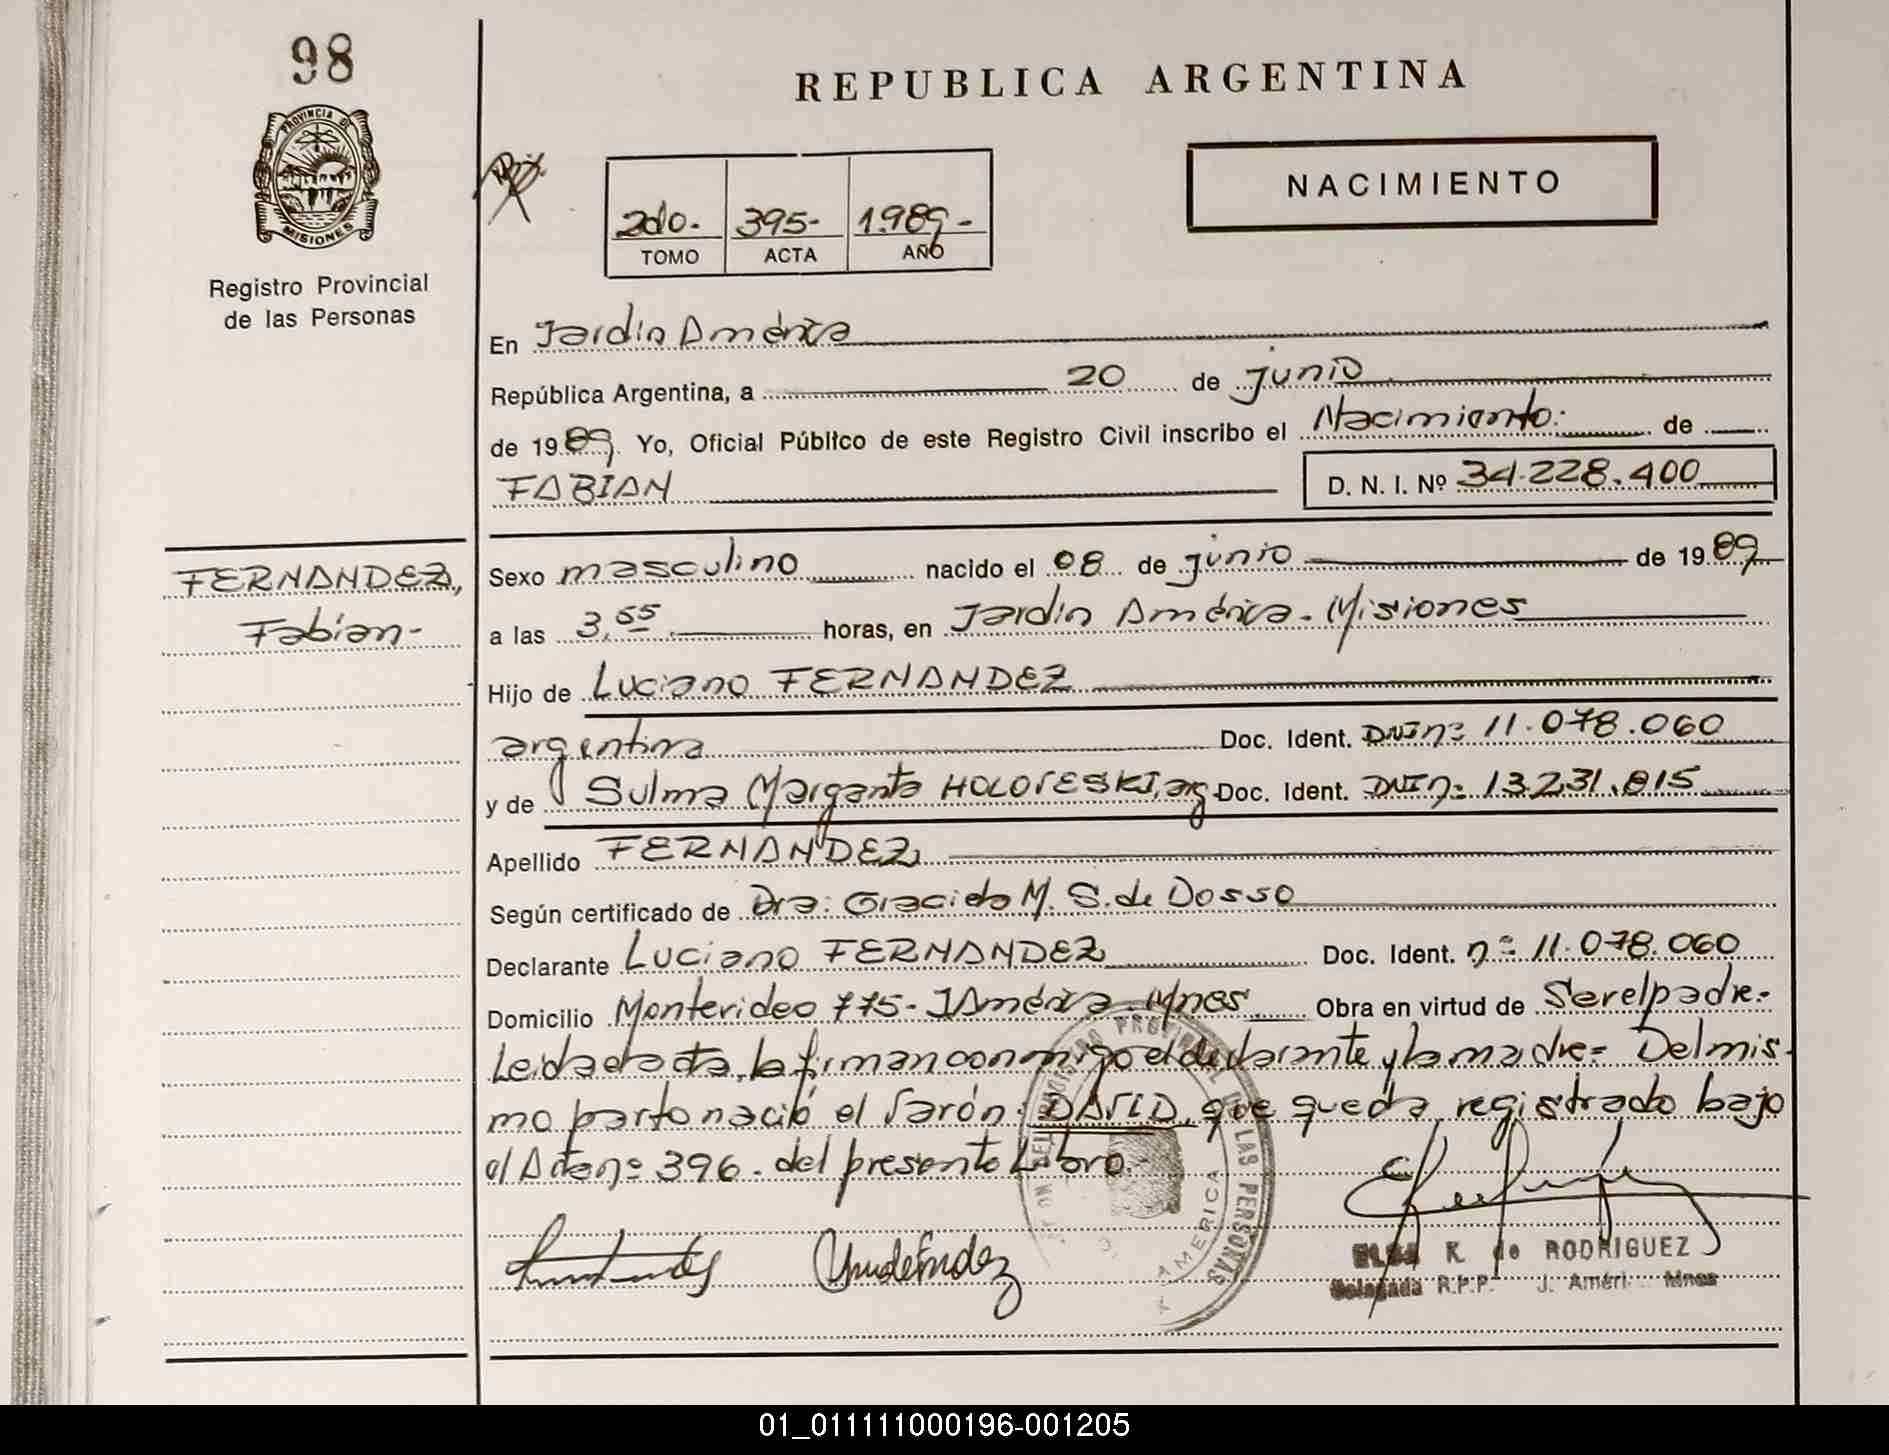 98
REPUBLICA ARGENTINA
PROVINCIA DE
MISIONES
NACIMIENTO
2do.- 395- 1.989-
TOMO ACTA AÑO
Registro Provincial
de las Personas
En Jardín América
República Argentina, a 20 de junio
de 1989. Yo, Oficial Público de este Registro Civil inscribo el Nacimiento: de
FABIAN D. N. I. Nº 34.228.400
FERNANDEZ,
Fabian-
Sexo masculino nacido el 08 de junio de 1989
a las 3,55 horas, en Jardín América. Misiones
Hijo de Luciano FERNANDEZ
argentina Doc. Ident. DNI nº 11.078.060
y de Sulma Margarita arg Doc. Ident. DNI nº 13.231.815
Apellido FERNANDEZ
Según certificado de Dra: M. S. de Dosso
Declarante Luciano FERNANDEZ Doc. Ident. nº 11.078.060
Domicilio Montevideo 775- J América. Mnes Obra en virtud de Ser el padre.-
Leída el acta, la firman conmigo el declarante y la madre= Del mis-
mo parto nació el varón: DAVID, que queda registrado bajo
el Acta nº 396. del presente Libro.-
REGISTRO PROVINCIAL DE LAS PERSONAS
AMERICA
ELSA R. de RODRIGUEZ
Delegada R.P.P. J. Améri Mnes
01_011111000196-001205